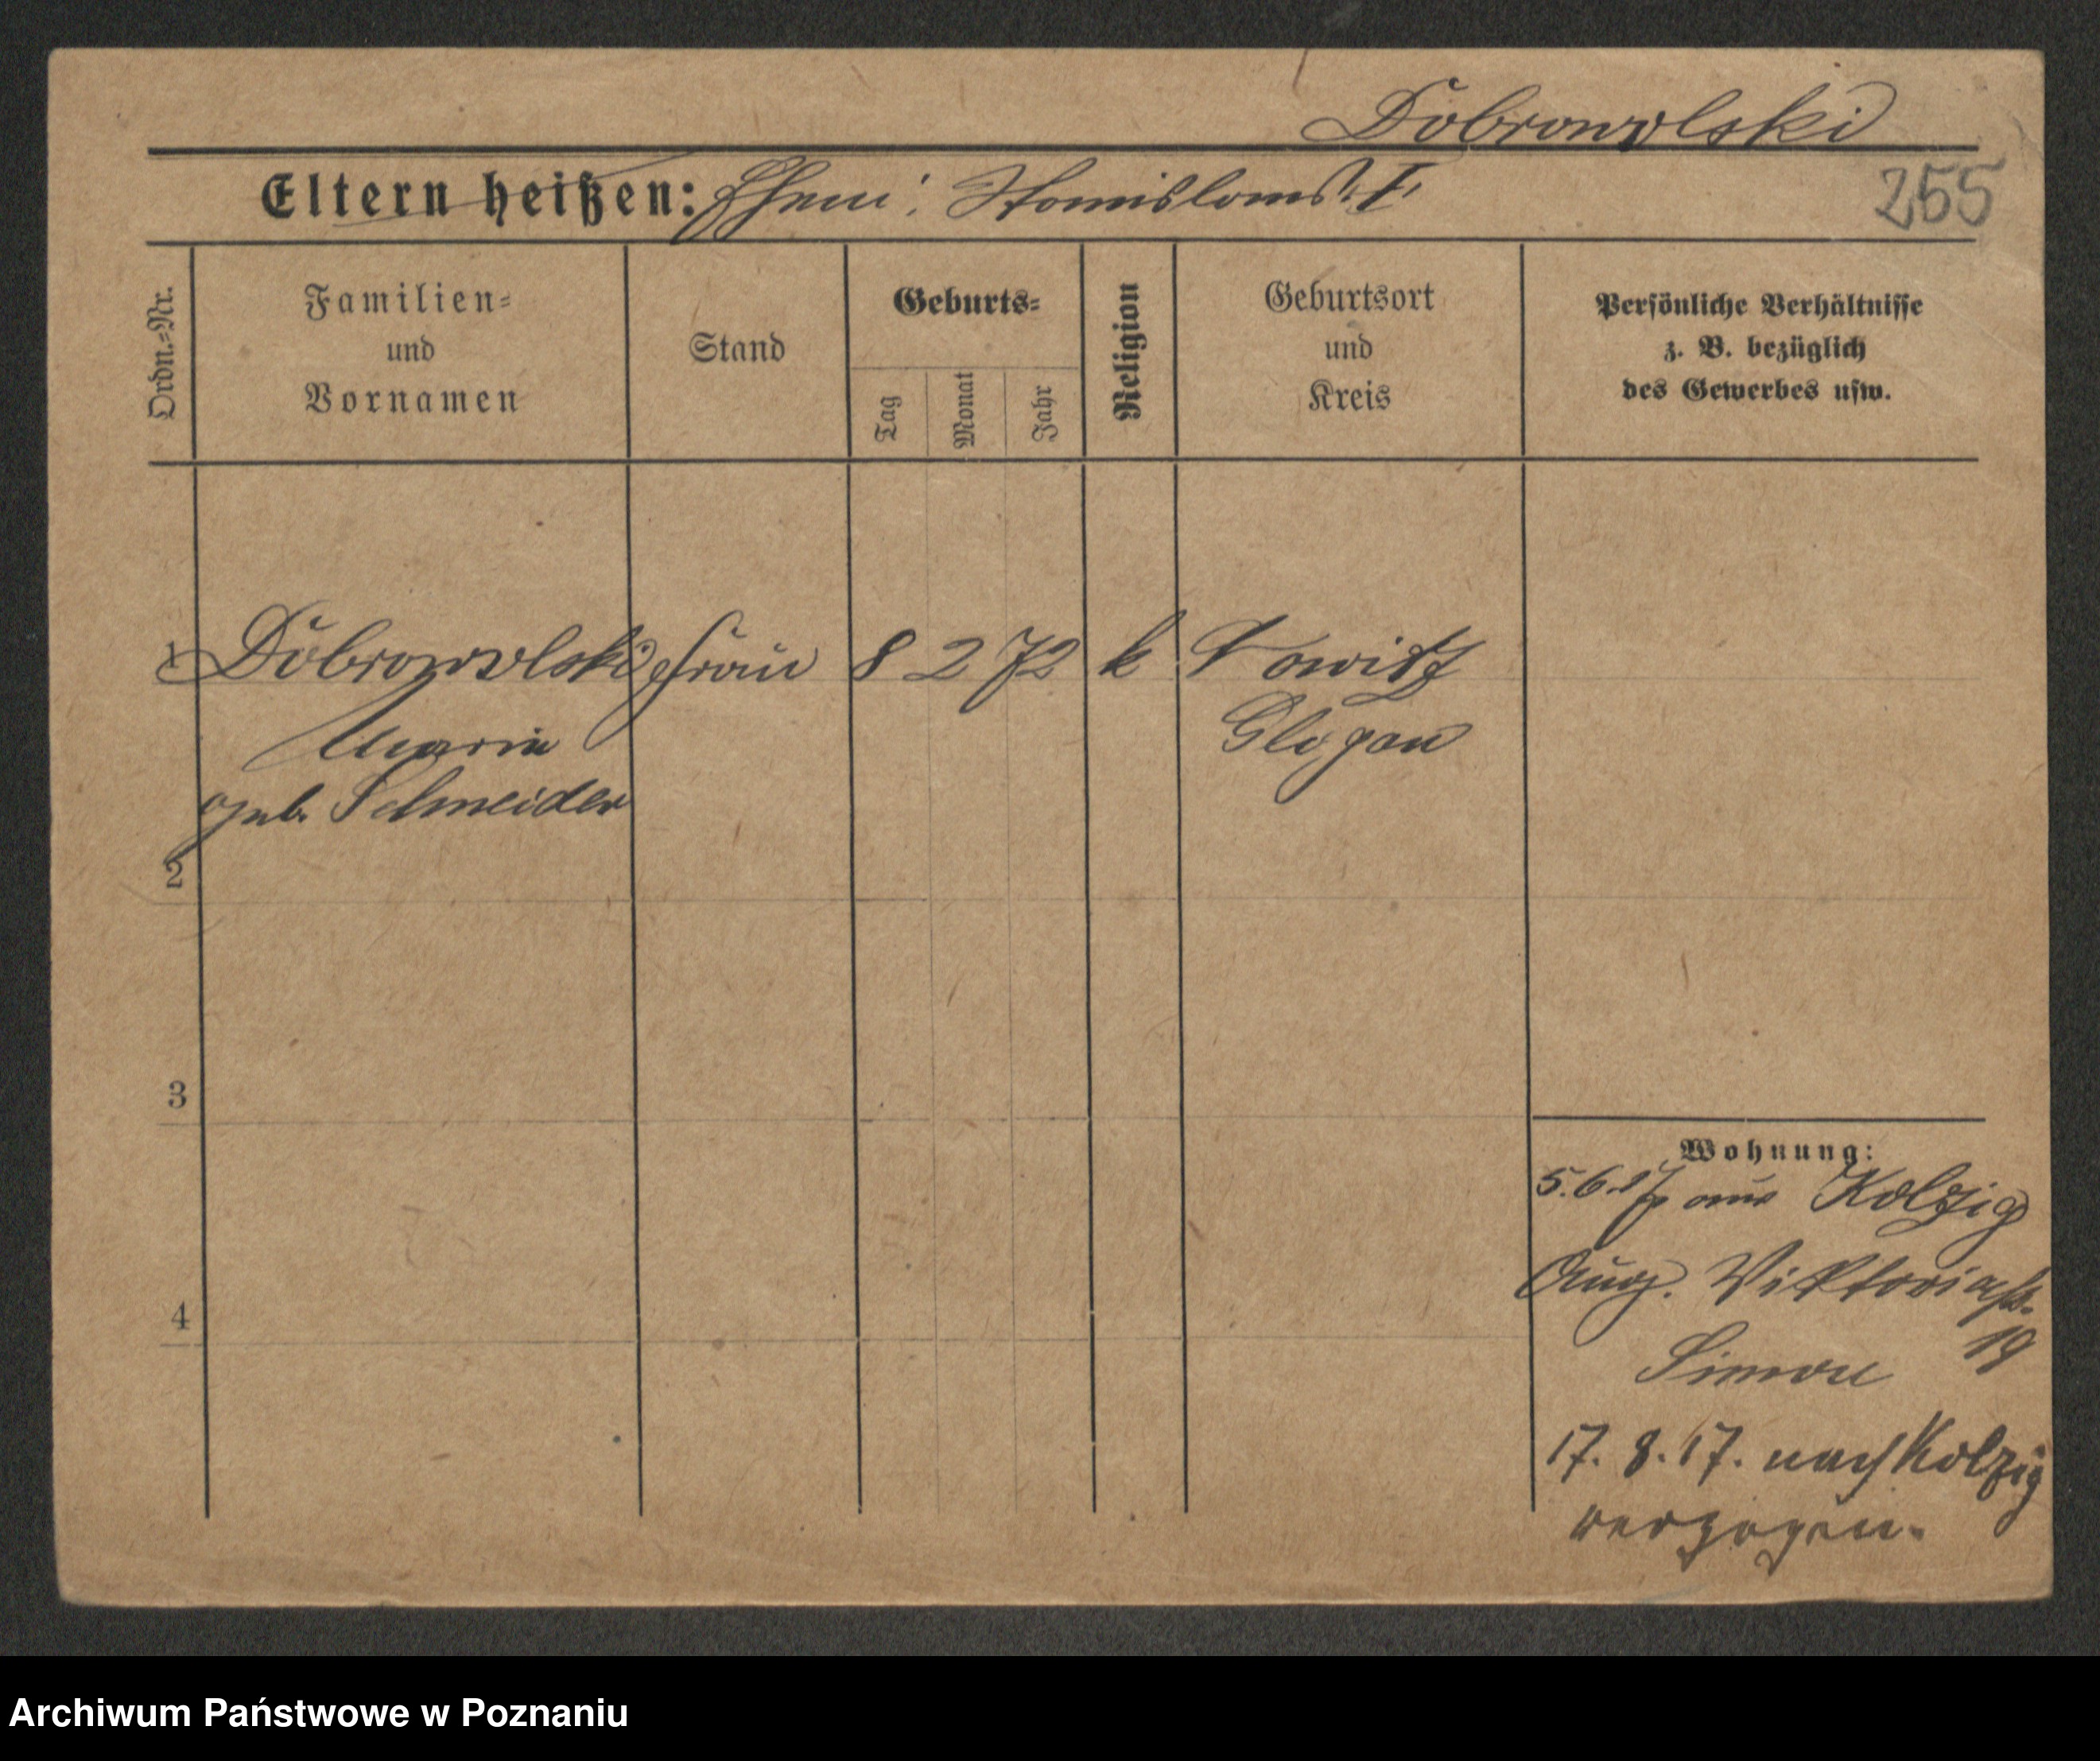 Dobrowolski
Eltern heißen: Ehem: Stanislaus I.
255
Ordn.=Nr.
Familien=
und
Vornamen
Stand
Geburts=
Tag
Monat
Jahr
Religion
Geburtsort
und
Kreis
Persönliche Verhältnisse
z. B. bezüglich
des Gewerbes usw.
1 Dobrowolski Frau 8 2 72 k
Maria Glogau
geb. Schneider
2
3
4
Wohnung:
5.6.17 aus Kolzig
Aug. Viktoriastr.
19
Simon
17. 8. 17. nach Kolzig
verzogen.
Archiwum Państwowe w Poznaniu